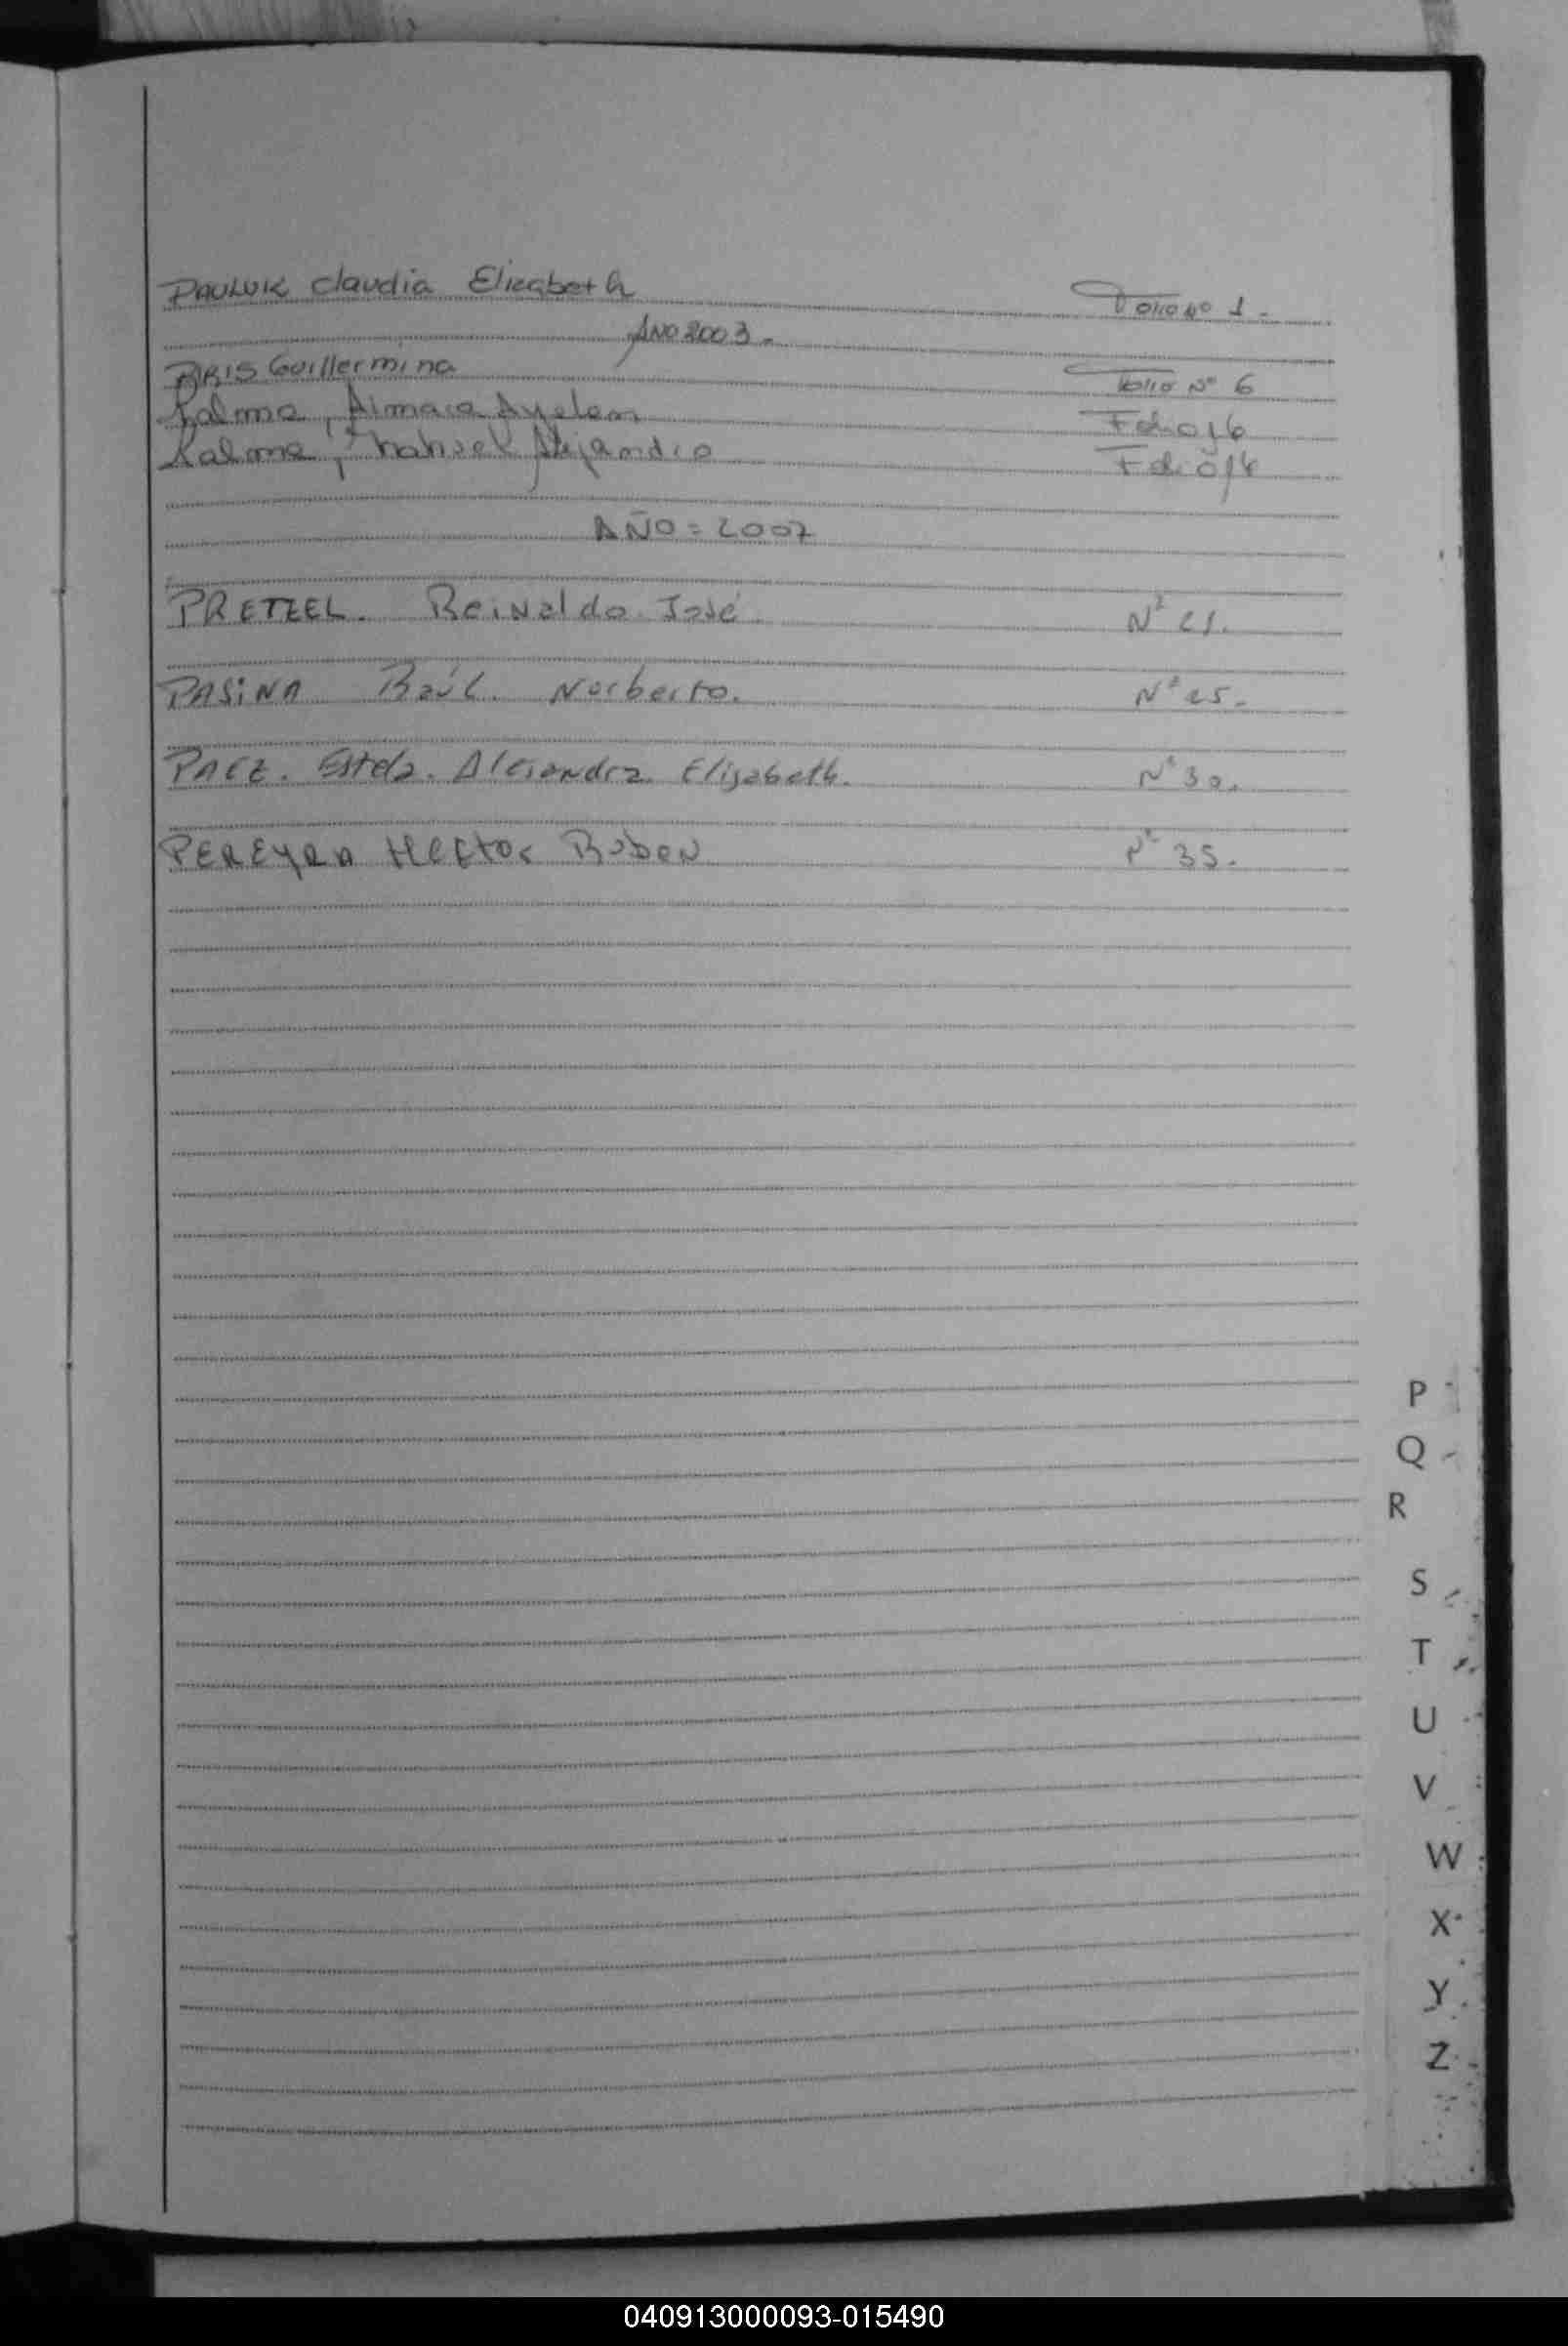 PAULUK Claudia Elizabeth Folio Nº 1.
AÑO 2003.
PARIS Guillermina Folio Nº 6
Palma, Aimara Ayelen Folio 16
Palma, Nahuel Alejandro Folio 16
AÑO = 2007
PRETZEL. Reinaldo José. Nº 21.
PASINA Raúl. Norberto. Nº 25.
PAEZ. Estela. Alejandra. Elizabeth. Nº 30.
PEREYRA Hector Ruben Nº 35.
P
Q
R
S
T
U
V
W
X
Y
Z
040913000093-015490